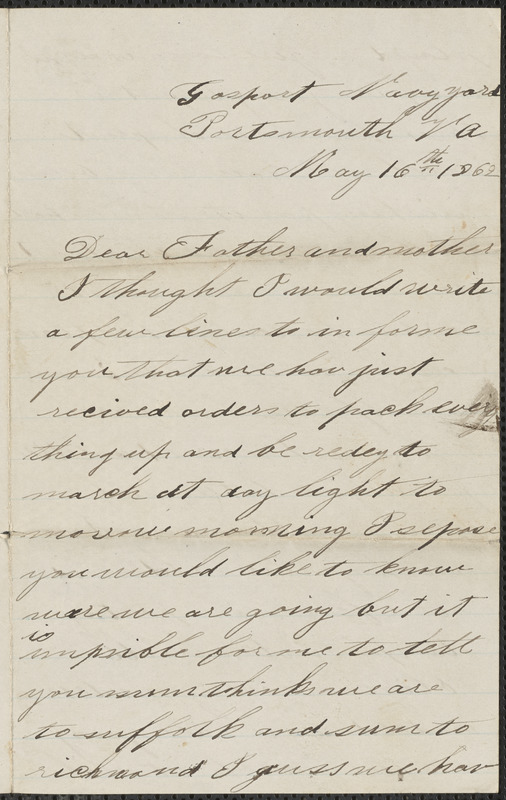 Gosport Navy yard
Portsmouth Va
May 16th 1862
Dear Father and mother
I thought I would write
a few lines to in forme
you that we hav just
recived orders to pack every
thing up and be redey to
march at day light to
morow morning I sepose
you would like to know
ware we are going but it
is
impsible for me to tell
you sum thinks we are
to suffolk and sum to
richmond I guss we hav